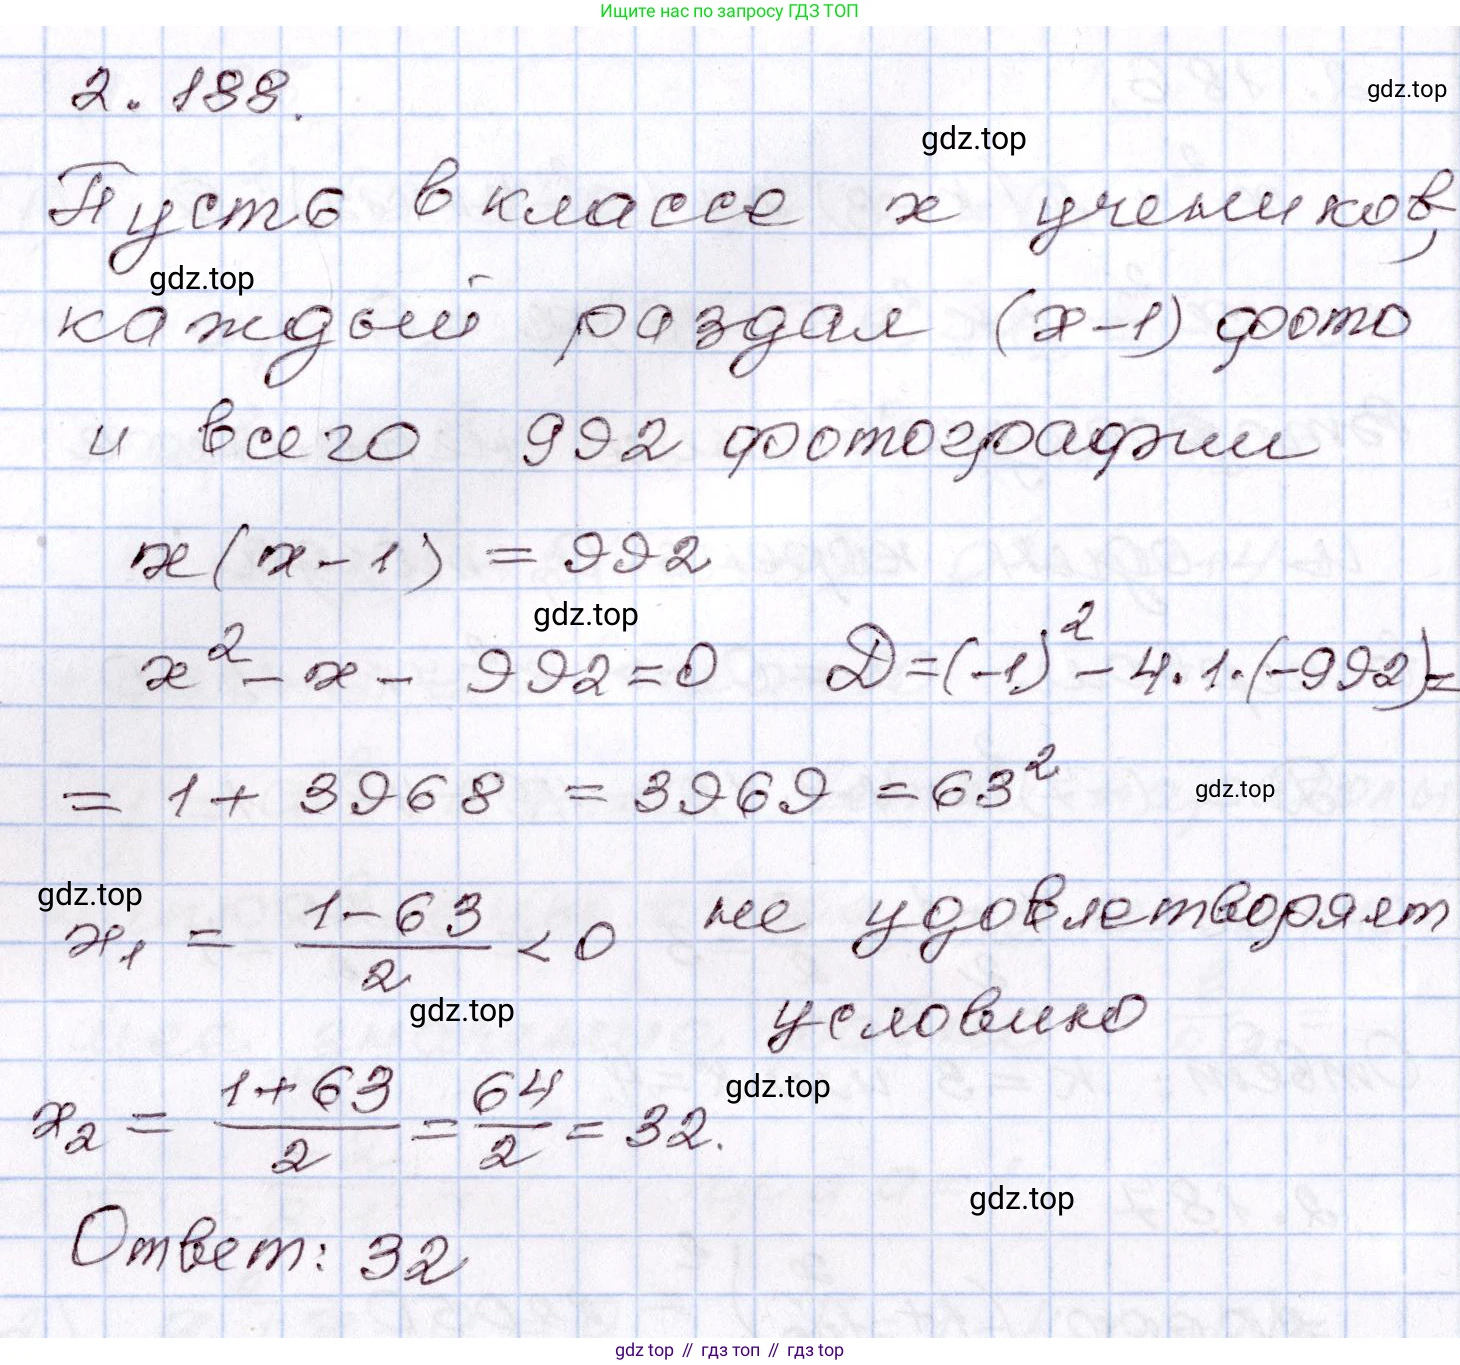 Ищите нас по запросу ГДЗ ТОП
2.188.
gdz.top
gdz.top
Пусть в классе x учеников,
gdz.top
каждый раздал (x-1) фото
и всего 992 фотографии
x(x-1) = 992
gdz.top
x² - x - 992 = 0 D = (-1)² - 4·1·(-992) =
= 1 + 3968 = 3969 = 63²
gdz.top
gdz.top
x₁ = (1-63)/2 < 0 не удовлетворяет
условию
gdz.top
gdz.top
x₂ = (1+63)/2 = 64/2 = 32.
gdz.top
Ответ: 32
gdz top // гдз топ // гдз top